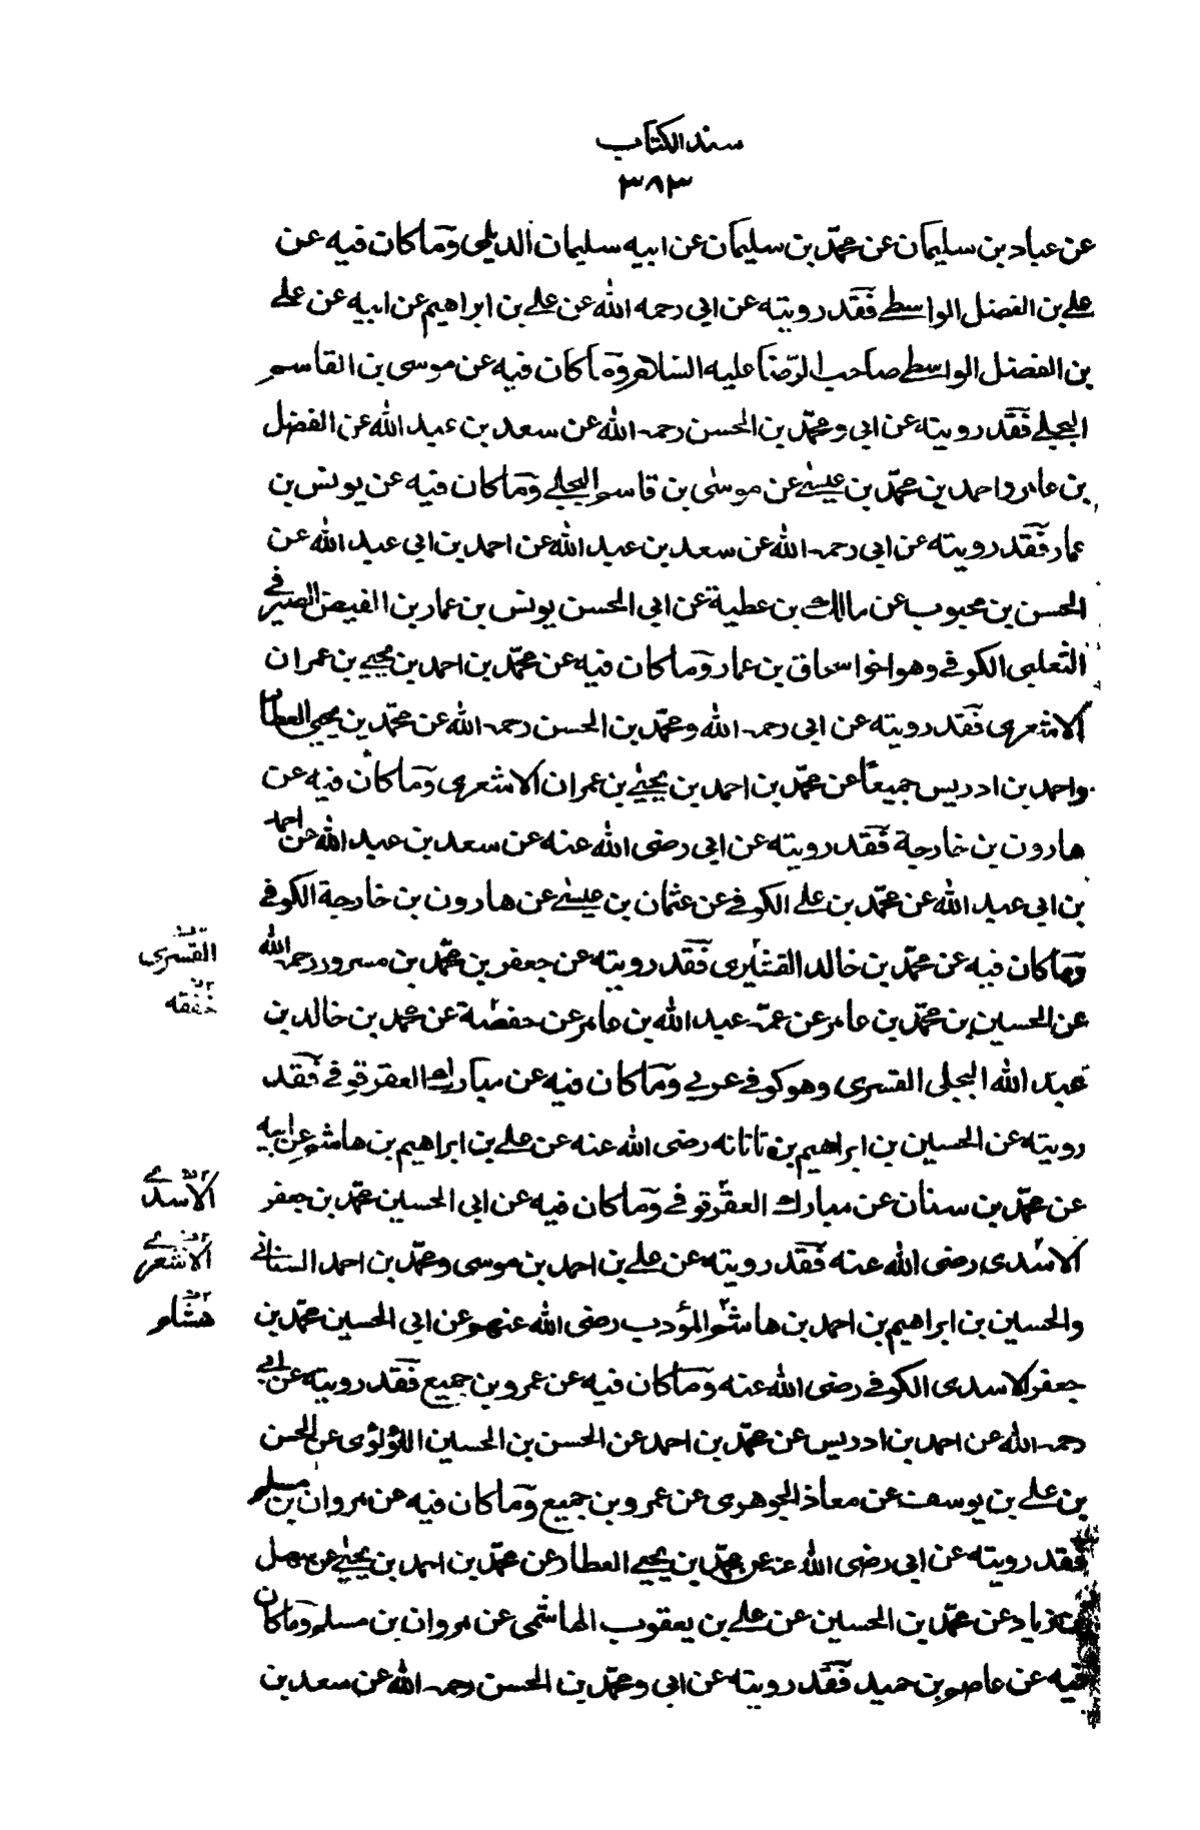 سند الكتاب
٣٨٣
عن عباد بن سليمان عن محمّد بن سليمان عن ابيه سليمان الديلمى وما كان فيه عن
على بن الفضل الواسطى فقد رويته عن ابى رحمه الله عن على بن ابراهيم عن ابيه عن على
بن الفضل الواسطى صاحب الرّضا عليه السّلام وما كان فيه عن موسى بن القاسم
البجلى فقد رويته عن ابى ومحمّد بن الحسن رحمه الله عن سعد بن عبد الله عن الفضل
بن عامر واحمد بن محمّد بن عيسى عن موسى بن قاسم البجلى وما كان فيه عن يونس بن
عمار فقد رويته عن ابى رحمه الله عن سعد بن عبد الله عن احمد بن ابى عبد الله عن
الحسن بن محبوب عن مالك بن عطية عن ابى الحسن يونس بن عمار بن الفيض الصيرفى
التغلبى الكوفى وهو اخو اسحاق بن عمار وما كان فيه عن محمّد بن احمد بن يحيى بن عمران
الاشعرى فقد رويته عن ابى رحمه الله ومحمّد بن الحسن رحمه الله عن محمّد بن يحيى العطار
واحمد بن ادريس جميعًا عن محمّد بن احمد بن يحيى بن عمران الاشعرى وما كان فيه عن
هارون بن خارجة فقد رويته عن ابى رضى الله عنه عن سعد بن عبد الله عن احمد
بن ابى عبد الله عن محمّد بن على الكوفى عن عثمان بن عيسى عن هارون بن خارجة الكوفى
وما كان فيه عن محمّد بن خالد القشيرى فقد رويته عن جعفر بن محمّد بن مسرور رحمه الله
القسرى
عن الحسين بن محمّد بن عامر عن عمّه عبد الله بن عامر عن حفصة عن محمد بن خالد بن
خفقه
عبد الله البجلى القسرى وهو كوفى عربى وما كان فيه عن مبارك العقرقوفى فقد
رويته عن الحسين بن ابراهيم بن تاتانه رضى الله عنه عن على بن ابراهيم بن هاشم عن ابيه
عن محمّد بن سنان عن مبارك العقرقوفى وما كان فيه عن ابى الحسين محمّد بن جعفر
الاسدى
الاسدى رضى الله عنه فقد رويته عن على بن احمد بن موسى ومحمّد بن احمد السنانى
الاشعرى
والحسين بن ابراهيم بن احمد بن هاشم المؤدب رضى الله عنهم عن ابى الحسين محمّد بن
هشام
جعفر الاسدى الكوفى رضى الله عنه وما كان فيه عن عمرو بن جميع فقد رويته عن ابى
رحمه الله عن احمد بن ادريس عن محمّد بن احمد عن الحسن بن الحسين اللؤلؤى عن الحسن
بن على بن يوسف عن معاذ الجوهرى عن عمرو بن جميع وما كان فيه عن مروان بن مسلم
فقد رويته عن ابى رضى الله عنه عن محمّد بن يحيى العطار عن محمّد بن احمد بن يحيى عن سهل
بن زياد عن محمّد بن الحسين عن على بن يعقوب الهاشمى عن مروان بن مسلم وما كان
فيه عن عاصم بن حميد فقد رويته عن ابى ومحمّد بن الحسن رحمه الله عن سعد بن